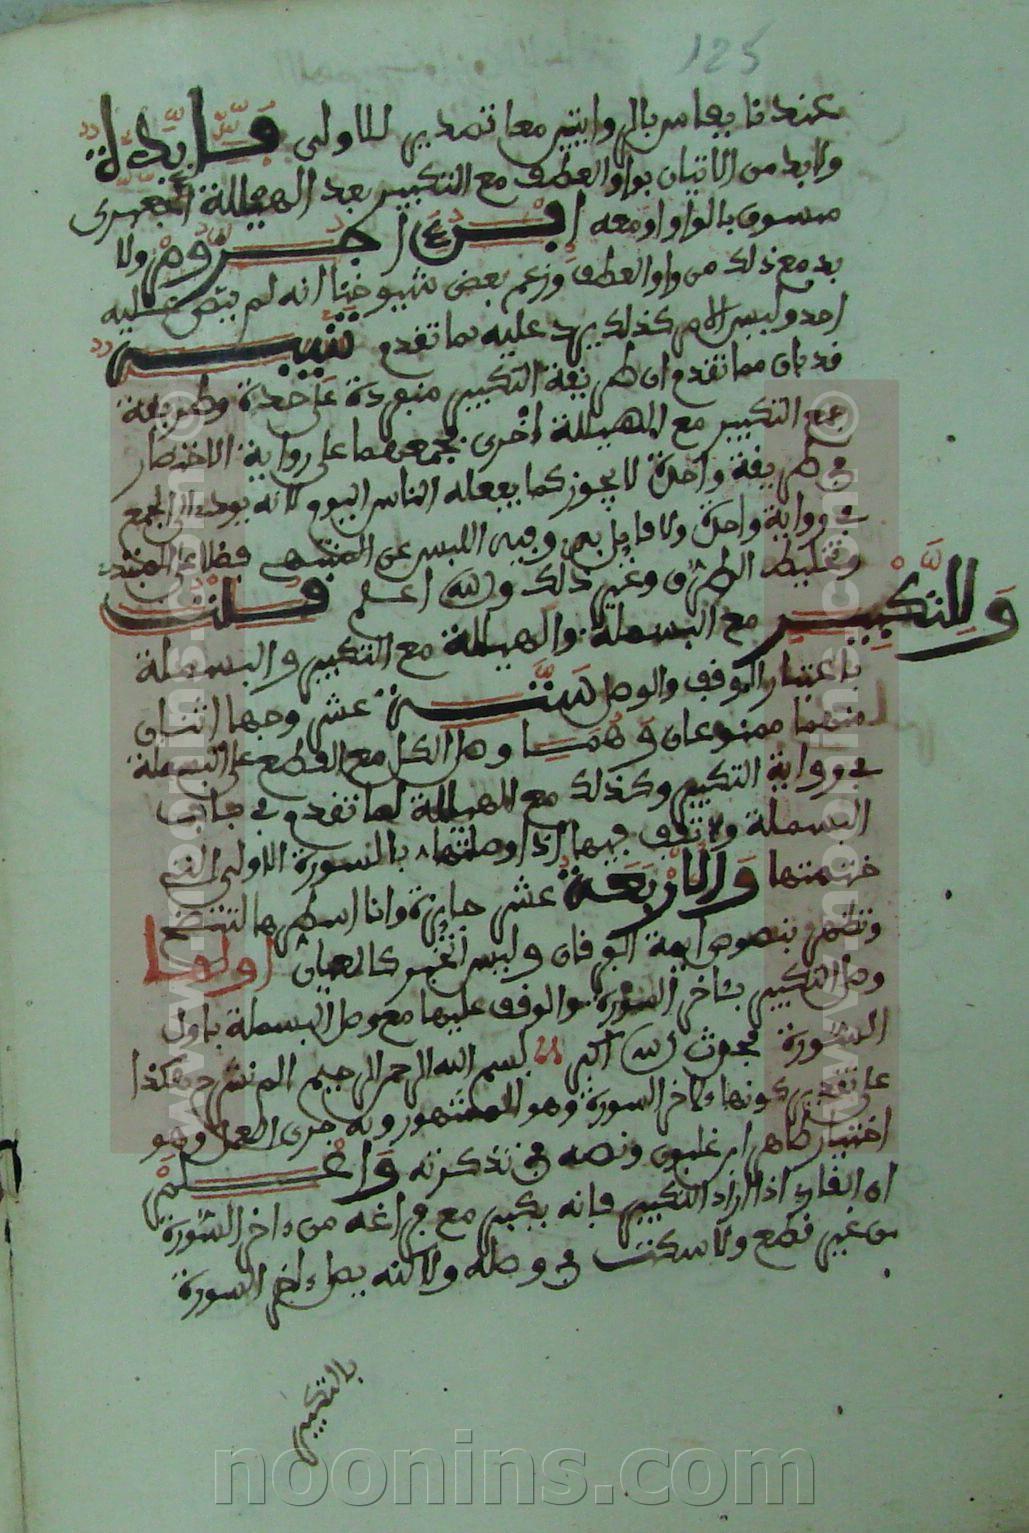 125
عندنا يعا سر بالروايتين معا تصدير للاولى قلا بد له
ولا بد من الاتيان بواو العطف مع التكبير بعد الهيللة الجعبرى
مسوى بالواو او معه ولا
بد مع ذلك من واو العطف وزعم بعض شيوخنا انه لم ينص عليه
احد وليس الامر كذلك يرد عليه بما تقدم تنبيه
قد بان مما تقدم ان طريقة التكبير منفردة على حدة وطريقة
جمع التكبير مع الهيللة اخرى فجمعهما على رواية الاختصار
في طريقة واحدة لا يجوز كما يفعله الناس اليوم لانه يودى الى الجمع
في رواية واحدة ولا قايل به وفيه اللبس على المنتهى فضلا على المبتدى
وتخليط الطرق وغير ذلك والله اعلم قلت
وللتكبير مع البسملة والهيللة مع التكبير والبسملة
باعتبار الوقف والوصل ستة عشر وجها اثنان
منهما ممنوعان وهما وصل الكل مع القطع على البسملة
في رواية التكبير وكذلك مع الهيللة لما تقدم في باب
البسملة ولا تقف فيها اذا وصلتها بالسورة الاولى التى
ختمتها والاربعة عشر جايزة وانا اسطرها لتتضح
وتظهر بنصوص ايمة الوفان وليس الخبر كالعيان اولها
وصل التكبير بئاخر السورة والوقف عليها مع وصل البسملة باول
السورة فحدث الله اكبر بسم الله الرحمن الرحيم الم نشرح هكذا
على تقدير كونها لاخر السورة وهو المشهور وبه جرى العمل وهو
اختيار طاهر ابن غلبون ونصه في تذكرته واعلم
ان القارئ اذا اراد التكبير فانه يكبر مع فراغه من ءاخر السورة
من غير قطع ولا سكت في وصله ولاكنه يصل ءاخر السورة
بالتكبير
www.noonins.com©
www.noonins.com©
noonins.com